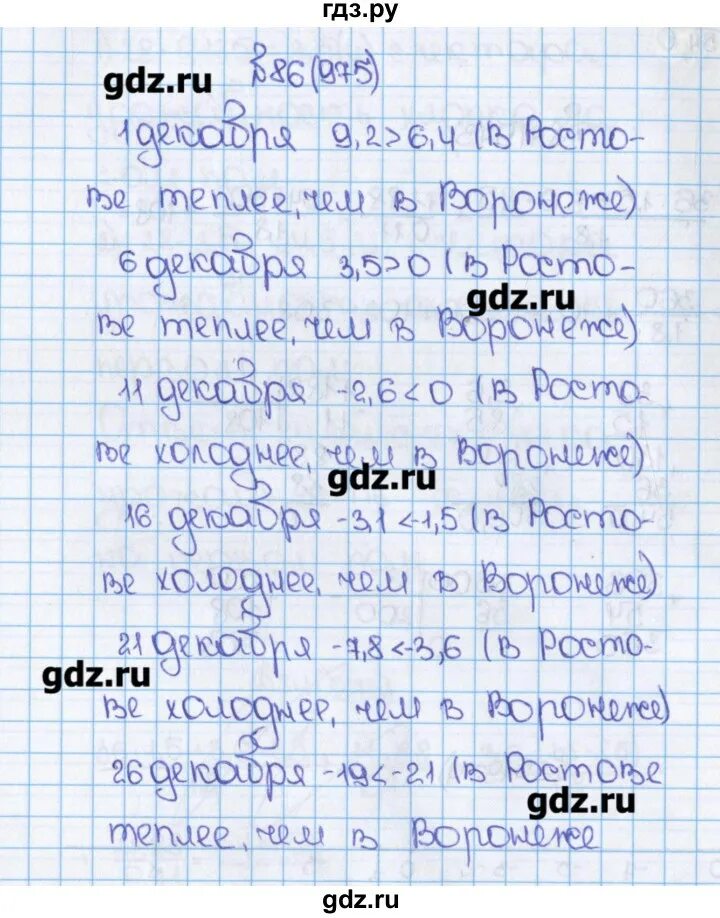 гдз.ру
№86(975)
gdz.ru
1 декабря 9,2>6,4 (В Росто-
ве теплее, чем в Воронеже)
6 декабря 3,5>0 (в Росто-
gdz.ru
ве теплее, чем в Воронеже)
11 декабря -2,6<0 (в Росто-
ве холоднее, чем в Воронеже)
gdz.ru
16 декабря -3,1<-1,5 (в Росто-
ве холоднее, чем в Воронеже)
21 декабря -7,8<-3,6 (в Росто-
gdz.ru
ве холоднее, чем в Воронеже)
26 декабря -19<-21 (в Ростове
gdz.ru
теплее, чем в Воронеже
gdz.ru